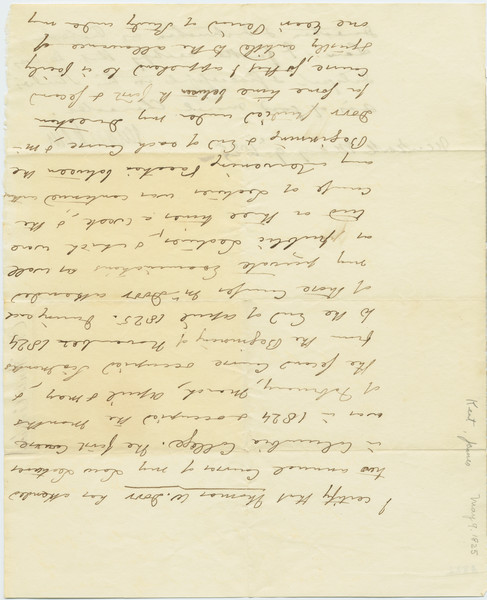 I certify that Thomas W. Dorr has attended
two annual Courses of my Law Lectures
in Columbia College. The first Course
was in 1824 & occupied the months
of February, March, April & May, &
the second Course occupied Six months
from the Beginning of November 1824
to the End of April 1825. During each
of those Courses Mr Dorr attended
my private Examinations as well
as public Lectures, & which were
two or three times a week, & the
Course of Lectures was continued without
any intervening Vacation between the
Beginning & End of each Course. & Mr
Dorr studied under my Direction
for some time between the first & second
Course, so that I apprehend he is fairly
& justly entitled to the allowance of
one Years Period of Study under my
Kent, James May 9, 1825